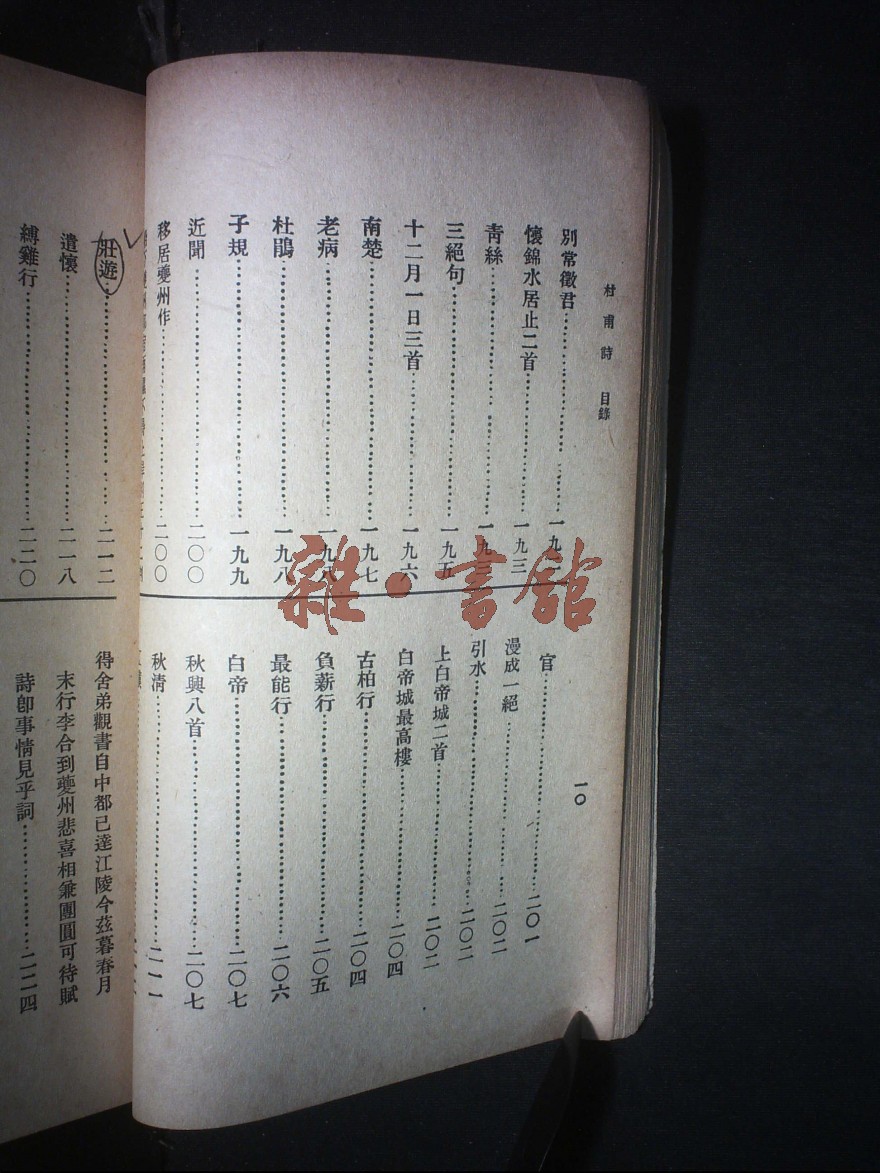 杜甫詩 目錄
一〇
別常徵君……一九
懷錦水居止二首……一九三
青絲……一九三
三絕句……一九五
十二月一日三首……一九六
南楚……一九七
老病……一九八
杜鵑……一九八
子規……一九九
近聞……二〇〇
移居夔州作……二〇〇
官……二〇一
漫成一絕……二〇二
引水……二〇二
上白帝城二首……二〇二
白帝城最高樓……二〇四
古柏行……二〇四
負薪行……二〇五
最能行……二〇六
白帝……二〇七
秋興八首……二〇七
秋清……二一一
壯遊……二一二
遣懷……二一八
縛雞行……二二〇
得舍弟觀書自中都已達江陵今茲暮春月
末行李合到夔州悲喜相兼團圓可待賦
詩卽事情見乎詞……二二四
雜·書館